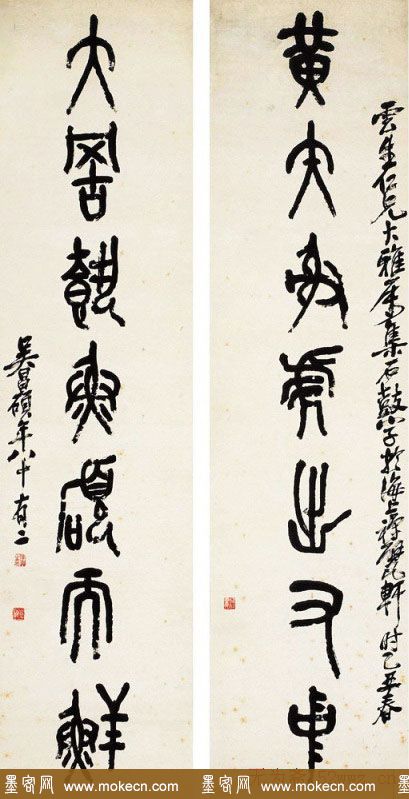 黄矢射虎出又中
雲生仁兄大雅屬集石鼓字於海上禪甓軒時乙丑春
大罟執魚碩而鮮
吳昌碩年八十有二
墨客网 www.mokecn.com 墨客网 www.mokecn.com